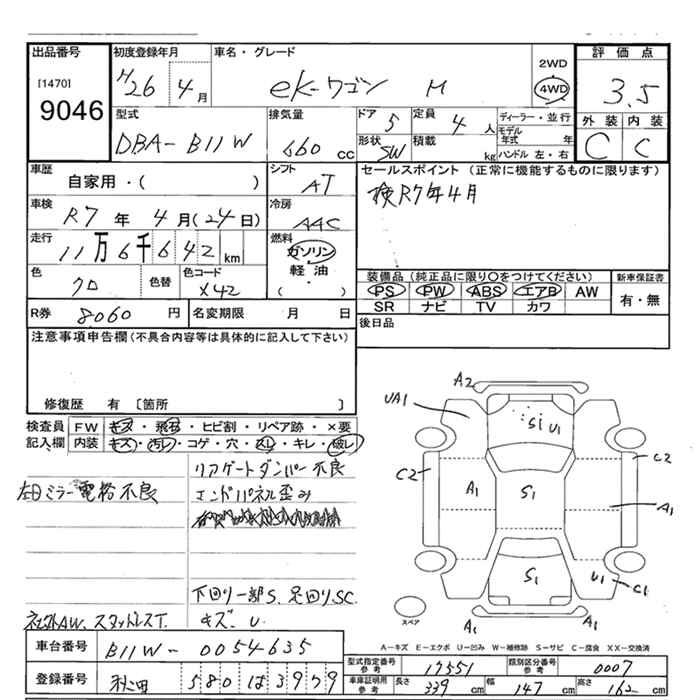 出品番号 初度登録年月 車名・グレード 評価点
[1470] 9046
H26 4月 ekワゴン M 2WD 4WD 3.5
外装 内装
C C
型式 排気量 ドア 定員 ディーラー・並行
DBA-B11W 660cc 5 4人 モデル年式 年
形状 SW 積載 kg ハンドル 左・右
車歴 シフト セールスポイント(正常に機能するものに限ります)
自家用・( ) AT 検R7年4月
車検 冷房
R7年 4月(24日) AAC
走行 燃料
11万6千642km ガソリン
軽油
( )
色 色替 色コード
クロ X42
装備品(純正品に限り○をつけてください) 新車保証書
PS PW ABS エアB AW 有・無
SR ナビ TV カワ
R券 8060円 名変期限 月 日
後日品
注意事項申告欄(不具合内容等は具体的に記入して下さい)
修復歴 有 [箇所 ]
検査員記入欄 FW キズ・飛石・ヒビ割・リペア跡・×要
内装 キズ・汚レ・コゲ・穴・スレ・キレ・破レ
リアゲートダンパー不良
左Dミラー電格不良
エンドパネル歪み
下回り一部S、足回りSC
社外AW、スタッドレスT. キズ・U
A2
UA1
S1 U1
C2 C2
A1 S1 A1
S1 U1 C1
A1 A1
スペア
A-キズ E-エクボ U-凹み W-補修跡 S-サビ C-腐食 XX-交換済
車台番号 B11W-0054635
登録番号 秋田 580 は 3979
型式指定番号 参考 17551 類別区分番号 参考 0007
車庫証明用 参考 長さ 339cm 幅 147cm 高さ 162cm